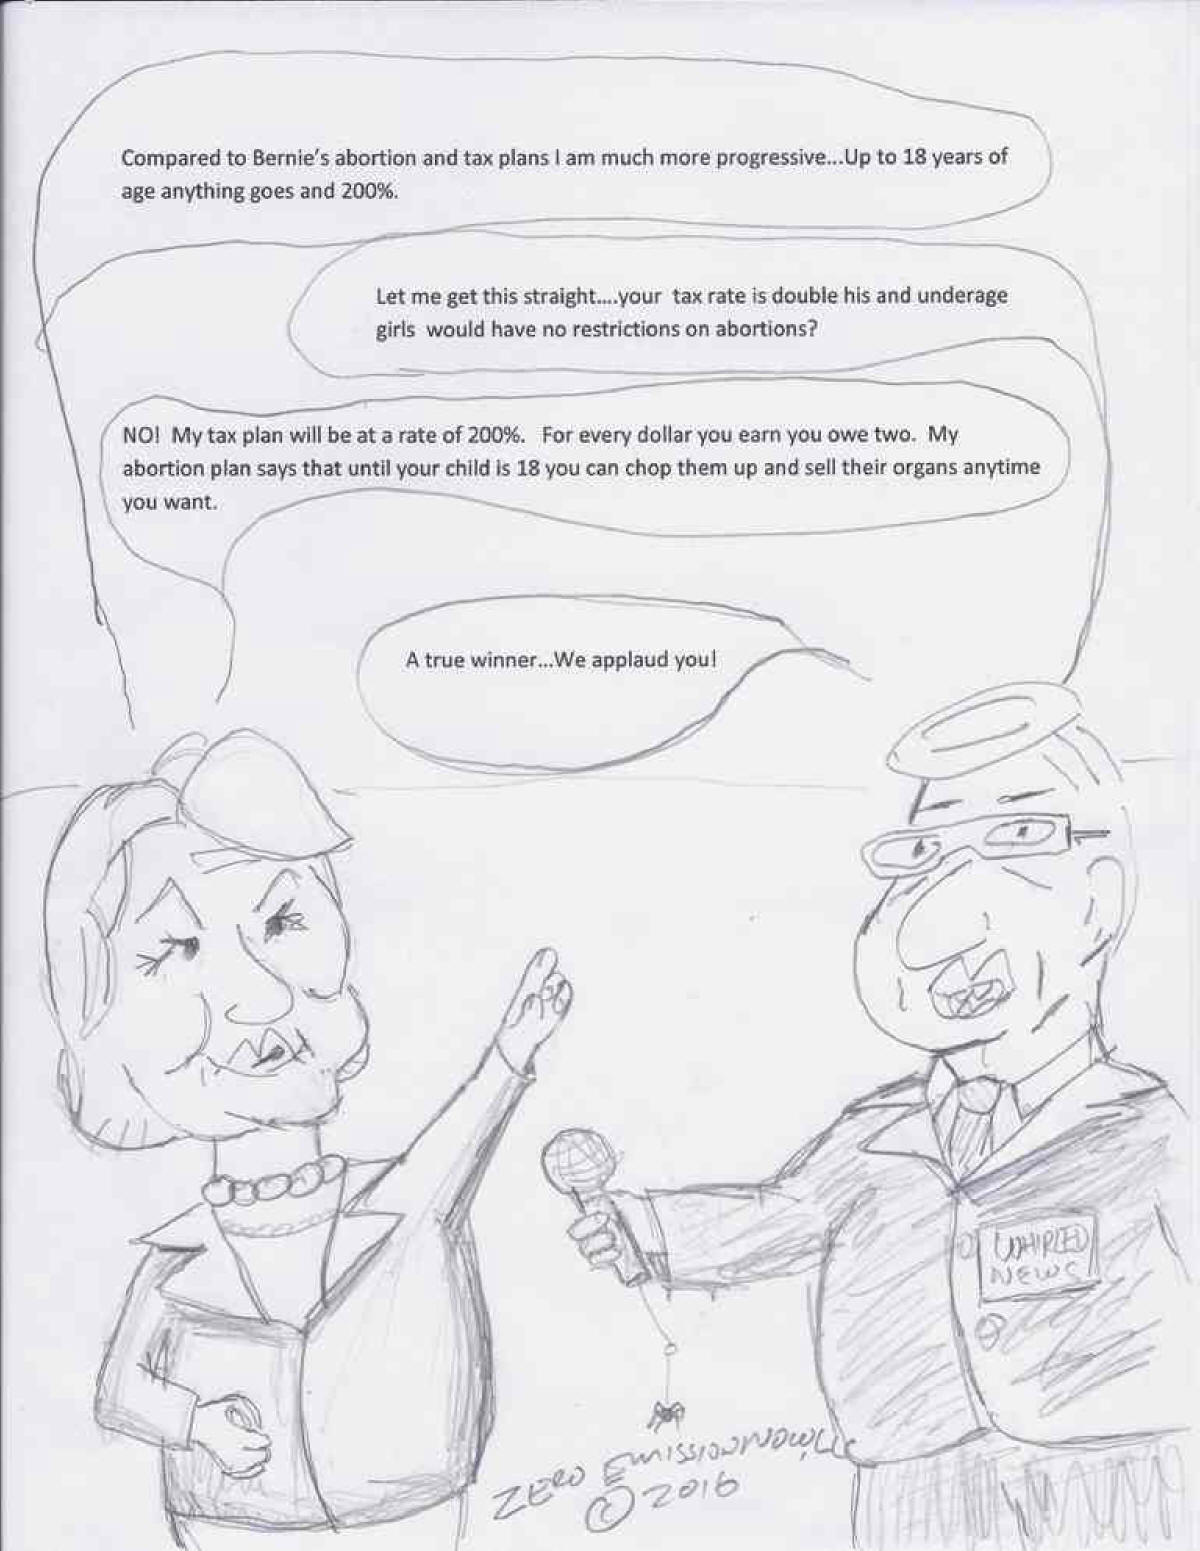 Compared to Bernie's abortion and tax plans I am much more progressive...Up to 18 years of
age anything goes and 200%.
Let me get this straight....your tax rate is double his and underage
girls would have no restrictions on abortions?
NO! My tax plan will be at a rate of 200%. For every dollar you earn you owe two. My
abortion plan says that until your child is 18 you can chop them up and sell their organs anytime
you want.
A true winner...We applaud you!
WHIRLED
NEWS
ZERO EMISSIONNOW,LLC
© 2016